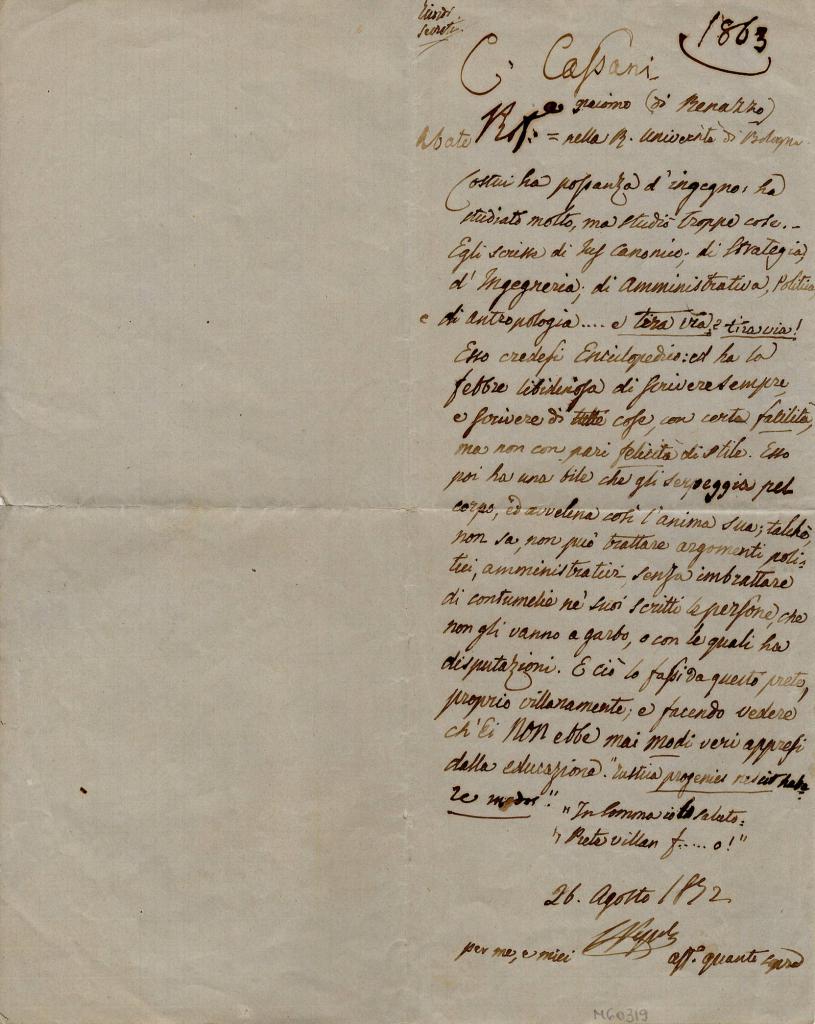 1863
C. Cassani
Giacomo (di Renazzo)
Abate = nella R. Università di Bologna
Costui ha possanza d'ingegno; ha
studiato molto, ma studiò troppe cose. –
Egli scrisse di Jus Canonico; di Strategia,
d'Ingegneria; di Amministrativa, Politica
e di antropologia.... e tira via, e tira via!
Esso credesi Enciclopedico: ed ha la
febbre libidinosa di scrivere sempre
e scrivere di tutte cose, con certa falilità,
ma non con pari felicità di stile. Esso
poi ha una bile che gli serpeggia pel
corpo, ed avvelena così l'anima sua; talchè,
non sa, non può trattare argomenti poli-
tici, amministrativi senza imbrattare
di contumelie ne' suoi scritti le persone, che
non gli vanno a garbo, o con le quali ha
disputazioni. E ciò lo fassi da questo prete,
proprio villanamente; e facendo vedere
ch'Ei NON ebbe mai modi veri appresi
dalla educazione. "Rustica progenies nescit habe-
re modos".
"In somma io lo saluto:
"Prete villan f.....o!"
26. Agosto 1872
per me, e miei
aff.º quanto sopra
M60319